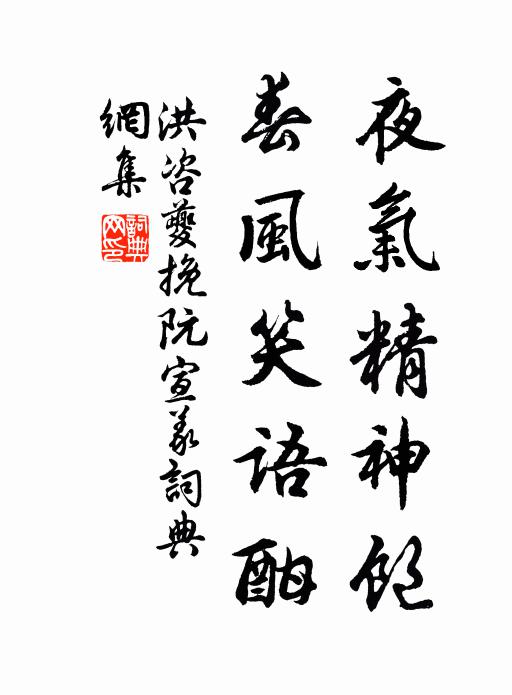 夜氣精神飽
春風笑語酣
洪咨夔挽阮宣義詞典
網集
詞典網印